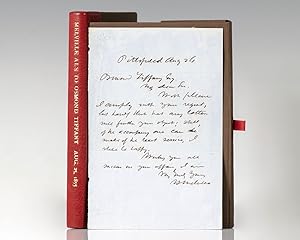 MELVILLE ALS TO OSMOND TIFFANY AUG. 24, 1855
Pittsfield Aug 24
Osmond Tiffany Esq
My dear Sir.
With pleasure
I comply with your request,
but hardly think that any letter
will further your object. Still,
if the accompanying one can be
made of the least service, I
shall be happy.
Wishing you all
success in your affair I am
Very truly Yours
H Melville